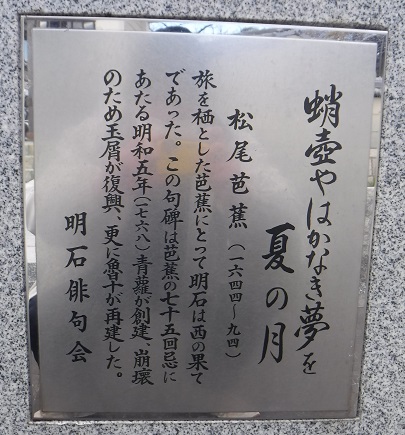 蛸壺やはかなき夢を
夏の月
松尾芭蕉(一六四四〜九四)
旅を栖とした芭蕉にとって明石は西の果て
であった。この句碑は芭蕉の七十五回忌に
あたる明和五年(一七六八)青蘿が創建、崩壊
のため玉屑が復興、更に魯十が再建した。
明石俳句会